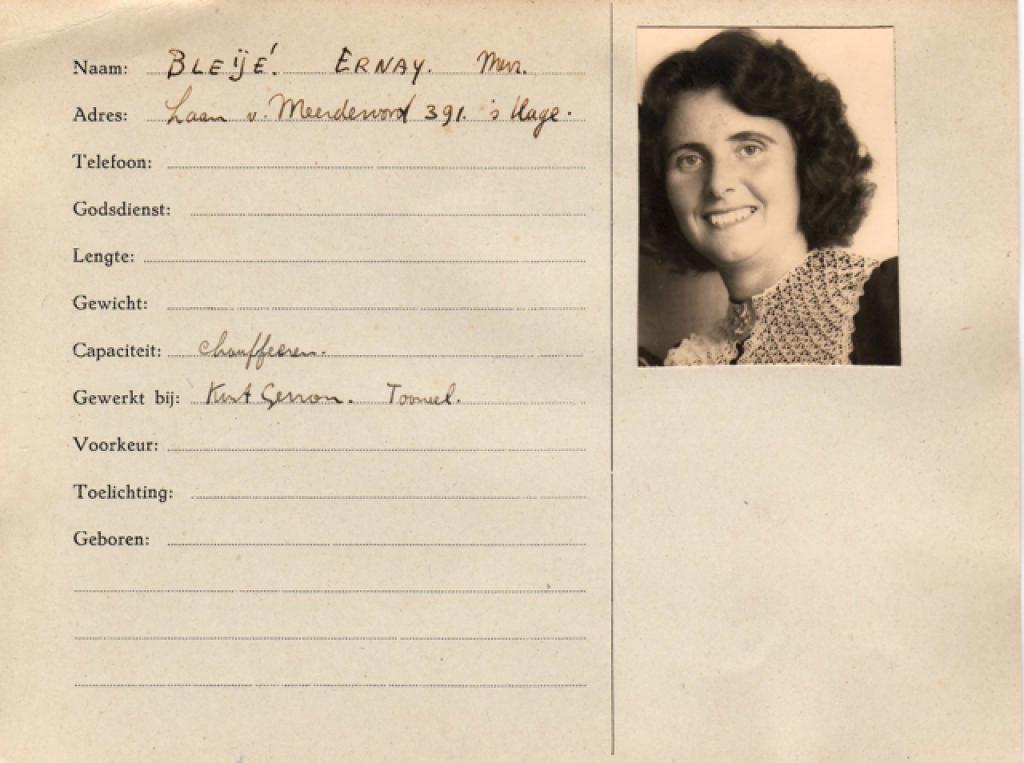 Naam: BLEIJÉ. ERNAY. Mevr.
Adres: Laan v. Meerdervoort 391. 's Hage.
Telefoon:
Godsdienst:
Lengte:
Gewicht:
Capaciteit:
Gewerkt bij: Kurt Gerron. Tooneel.
Voorkeur:
Toelichting:
Geboren: